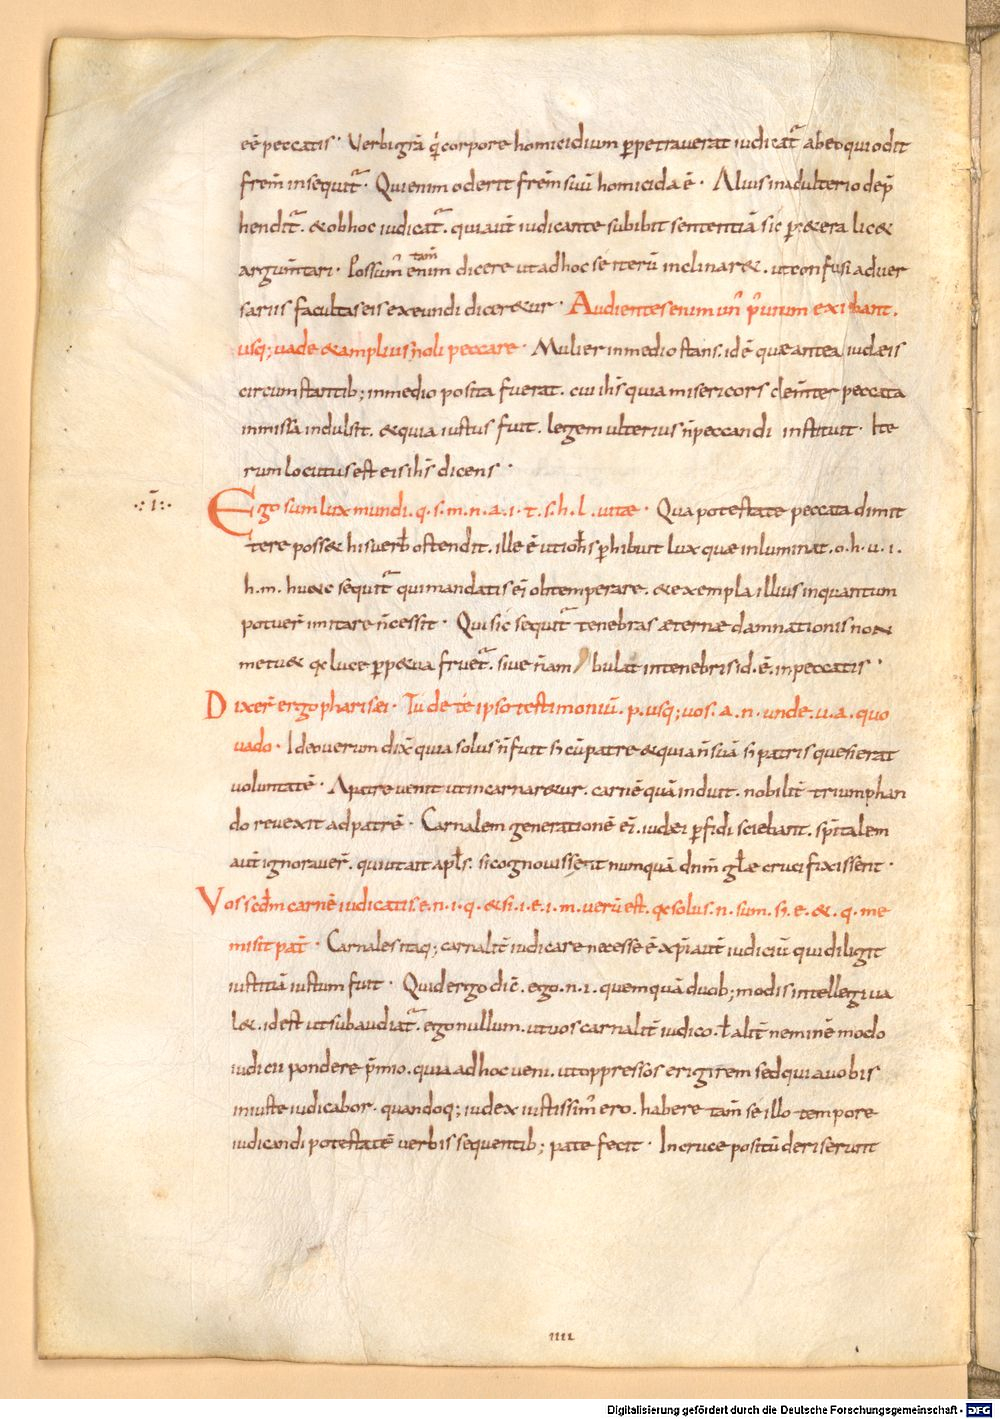 eē peccatis· Verbi grā q̓ corpore homicidium ꝑpetraverat iudicat᷑ ab eo qui odit
frēm insequit᷑· Qui enim oderit frēm suū homicida ē· Alius in adulterio dep̄
hendit᷑. & ob hoc iudicat᷑. qui aut̄ iudicante subibit sententiā sic &
argum̄tari· Possum̄ enim tam̄ dicere ut ad hoc se iterū inclinar&. ut confusi adver
sariis facultas eis exeundi dicer&ur· Audientes enim un᾿ p᾿ unum exiebant.
usq; vade & amplius noli peccare· Mulier in medio stans. id ē quæ antea iudæis
circumstantib; in medio posita fuerat. cui ih̄s quia misericors clem̄ter peccata
inmissa indulsit. & quia iustus fuit. legem ulterius n̄ peccandi instituit· Ite
rum locutus est eis ih̄s dicens·
·:ī:·
Ego sum lux mundi. q. s. m. n. a. i. t. s. h. l. vitæ· Qua potestate peccata dimit
tere poss& his verb̄ ostendit. ille ē ut ioh̄s ꝑhibuit lux quæ inluminat. o. h. u. i.
h. m. hunc sequit᷑ qui mandatis ei᾿ obtemperare. & exempla illius inquantum
potuer̄ imitare n̄ cessit· Qui sic sequit᷑ tenebras æternæ damnationis non
metu& qꝛ luce ꝑp&ua fruet᷑. sive n̄ ambulat in tenebris id. ē. in peccatis·
Dixer̄ ergo pharisei· Tu de te ipso testimoniū. p. usq; vos. a. n. unde. u. a. quo
vado· Ideo verum dix̄ quia solus n̄ fuit s; cū patre & quia n̄ suā s; patris quesierat
voluntatē· A patre venit ut incarnar&ur. carnē quā induit. nobilit̄ triumphan
do revexit ad patrē· Carnalem generationē ei᾿. iudei ꝑfidi sciebant. sp̄italem
aut̄ ignoraver̄. qui ut ait apl̄s. si cognovissent nunquā dn̄m gl̄æ crucifixissent·
Vos scd̄m carnē iudicatis. e. n. i. q. & si. i. e. i. m. verū est. qꝛ solus. n. sum. s; e. &. q. me
misit pat̄· Carnales itaq; carnalit̄ iudicare necesse ē xp̄i aut̄ iudiciū qui diligit
iustitiā iustum fuit· Quid ergo dic̄. ego. n. i. quemquā duob; modis intellegi va
l&. id est ut subaudiat᷑. ego nullum. ut vos carnalit̄ iudico. ł alit̄ neminē modo
iudicii pondere p̄mo. quia ad hoc veni. ut oppressos erigerem sed qui a vobis
iniuste iudicabor. quandoq; iudex iustissim᾿ ero. habere tam̄ se illo tempore
iudicandi potestatē verbis sequentib; patefecit· In cruce positū deriserunt
IIII
Digitalisierung gefördert durch die Deutsche Forschungsgemeinschaft - DFG